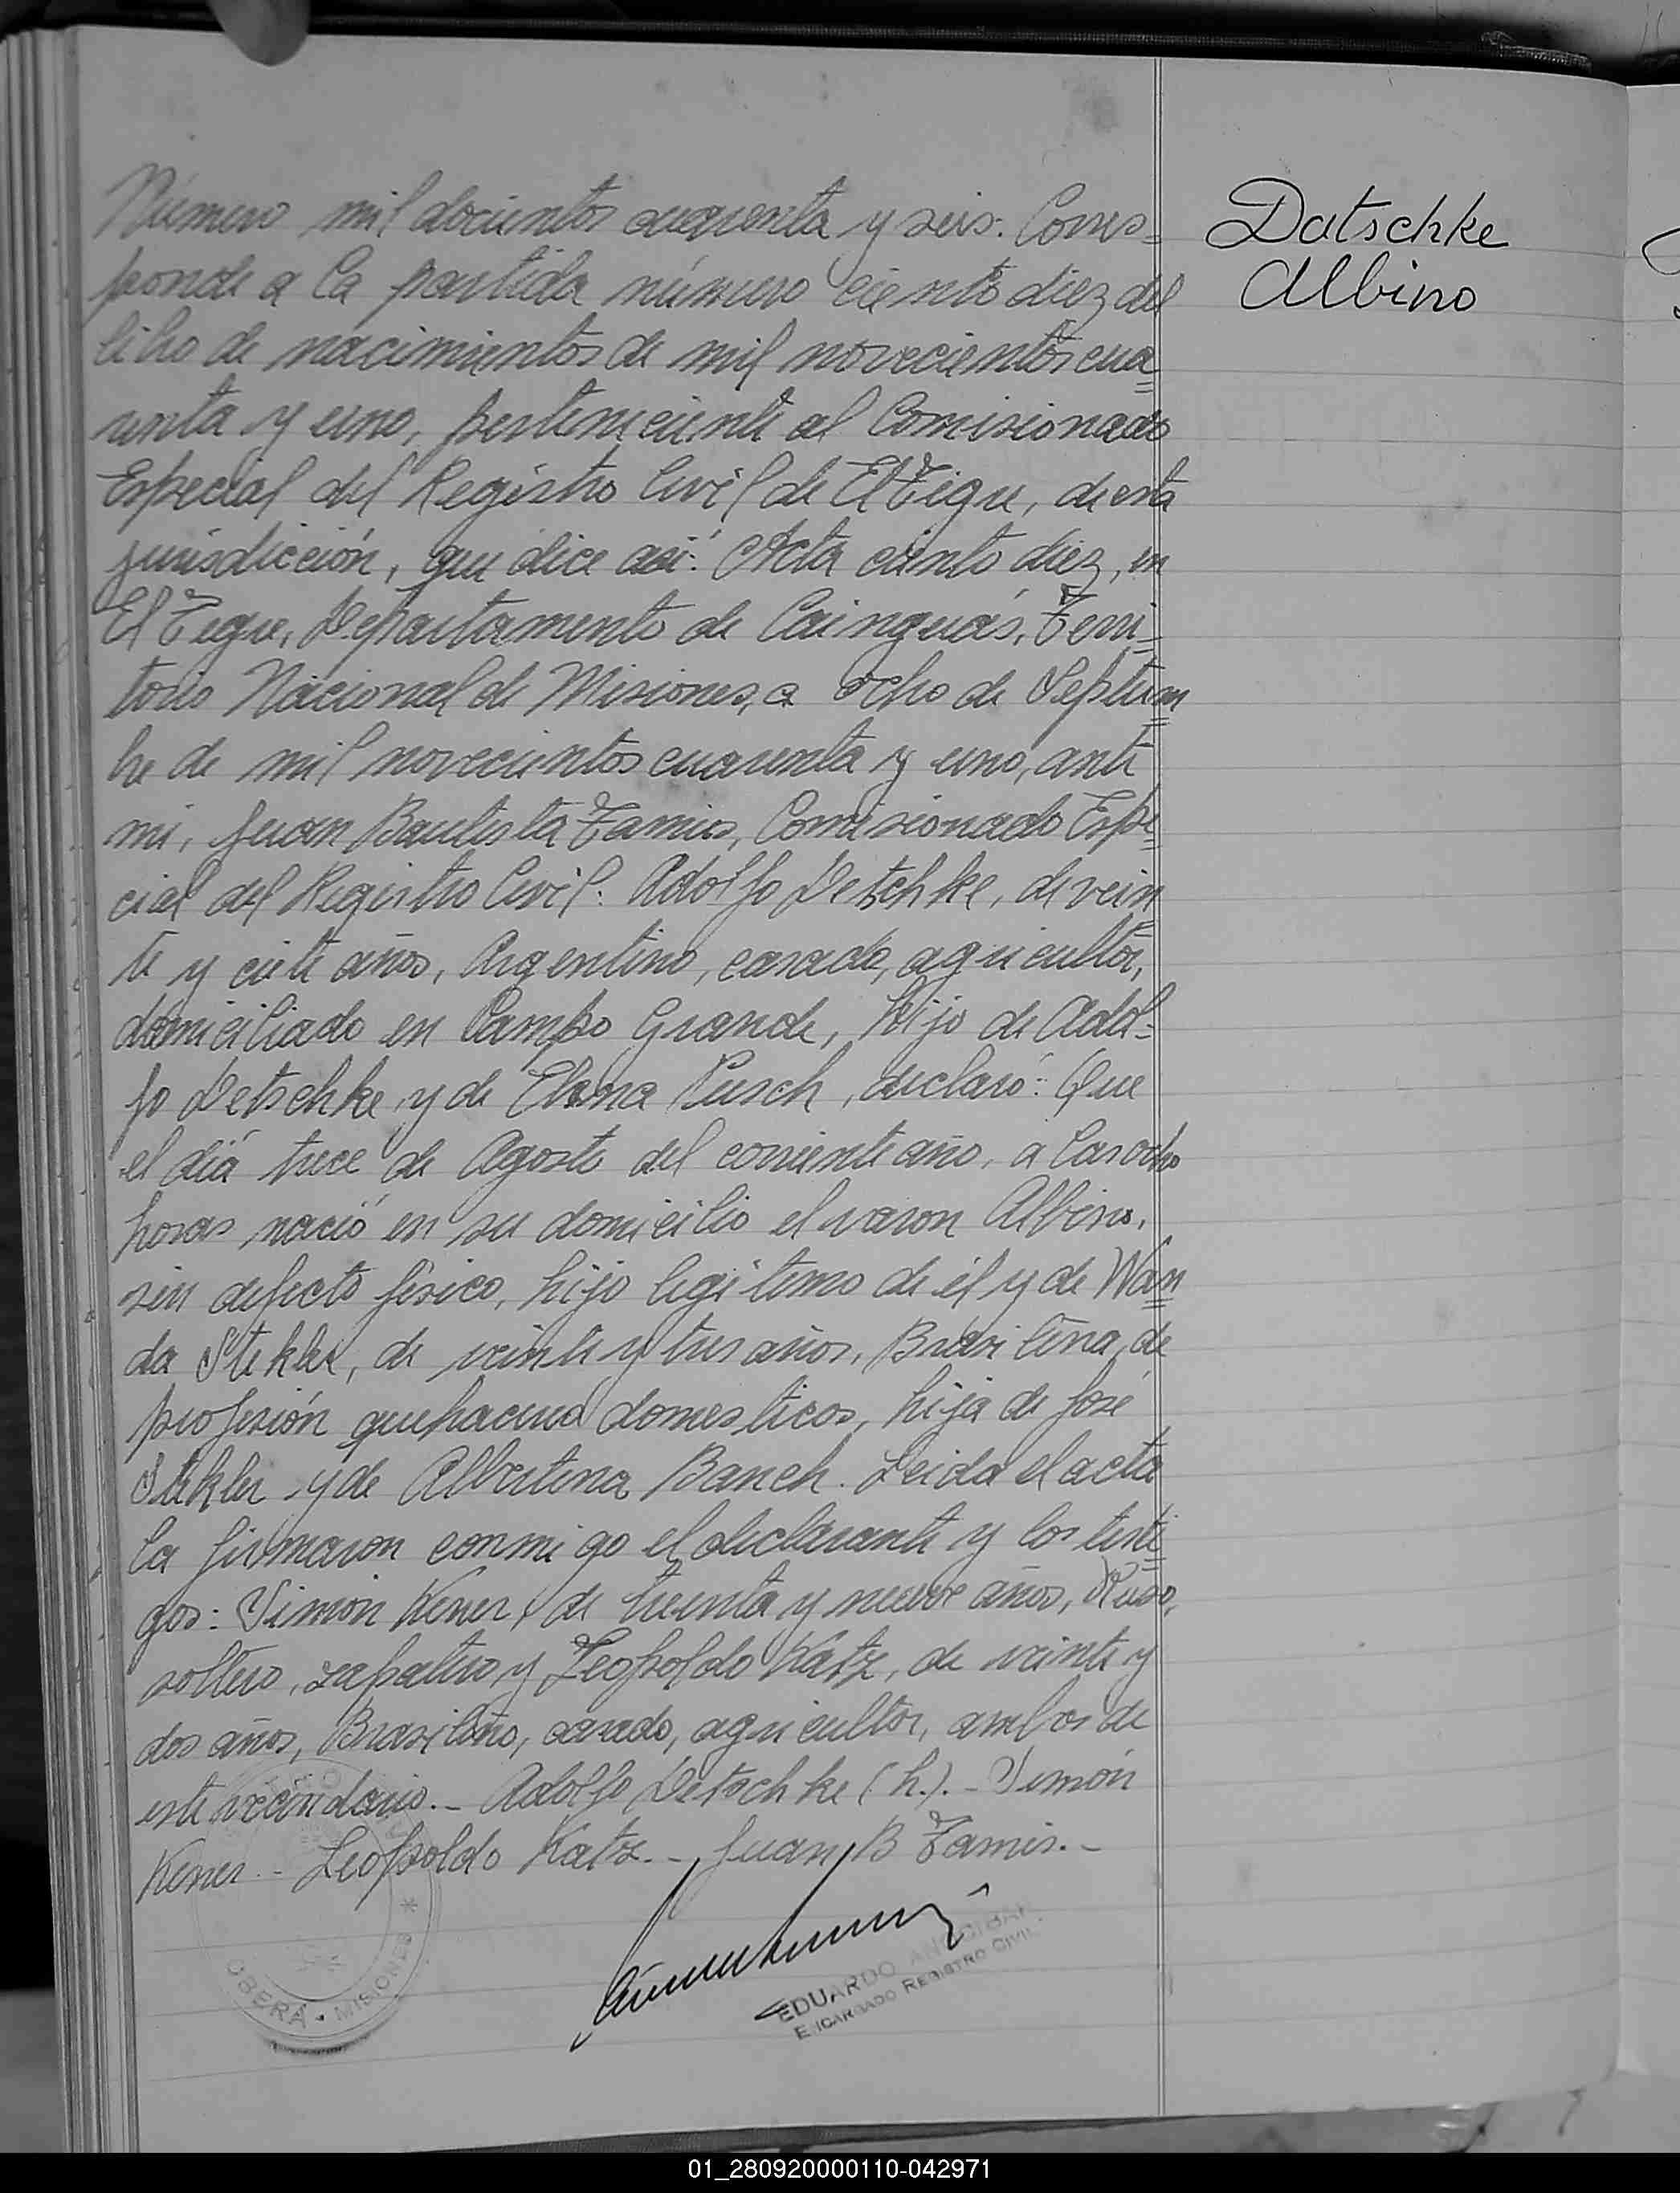 Número mil docientos cuarenta y seis: Corres=
ponde a la partida número ciento diez del
libro de nacimientos de mil novecientos cua=
renta y uno, perteneciente al Comisionado
Especial del Registro Civil de El Tigre, de esta
jurisdicción, que dice asi: Acta ciento diez, en
El Tigre, Departamento de Cainguás, Terri=
torio Nacional de Misiones, a ocho de Septiem=
bre de mil novecientos cuarenta y uno, ante
mi, Juan Bautista Zamis, Comisionado Espe=
cial del Registro Civil: Adolfo Detschke, de vein
te y ciete años, Argentino, casado, agricultor,
domiciliado en Campo Grande, hijo de Adol=
fo Detschke y de Elena Pusch, declaró: Que
el diá trece de Agosto del corriente año, a las ocho
horas nació en su domicilio el varon Albino,
sin defecto fisico, hijo legitimo de él y de Wan=
da Stekler, de veinte y tres años, Brasileña, de
profesión quehaceres domesticos, hija de José
Stekler y de Albertina Banch. Leida el acta
la firmaron conmigo el declarante y los testi=
gos: Simón Kener, de treinta y nueve años, Ruso,
soltero, zapatero y Leopoldo Katz, de veinte y
dos años, Brasileño, casado, agricultor, ambos de
este vecindario.- Adolfo Detschke (h.).- Simón
Kener.- Leopoldo Katz.- Juan B Zamis.-
EDUARDO
ENCARGADO REGISTRO CIVIL
OBERÁ - MISIONES *
Datschke
Albino
01_280920000110-042971